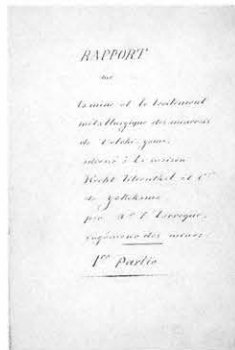 RAPPORT
sur
la mine et le traitement
métallurgique des minerais
de
adressé à la maison
et Cie
de Yokohama
par
ingénieur des mines.
1re Partie